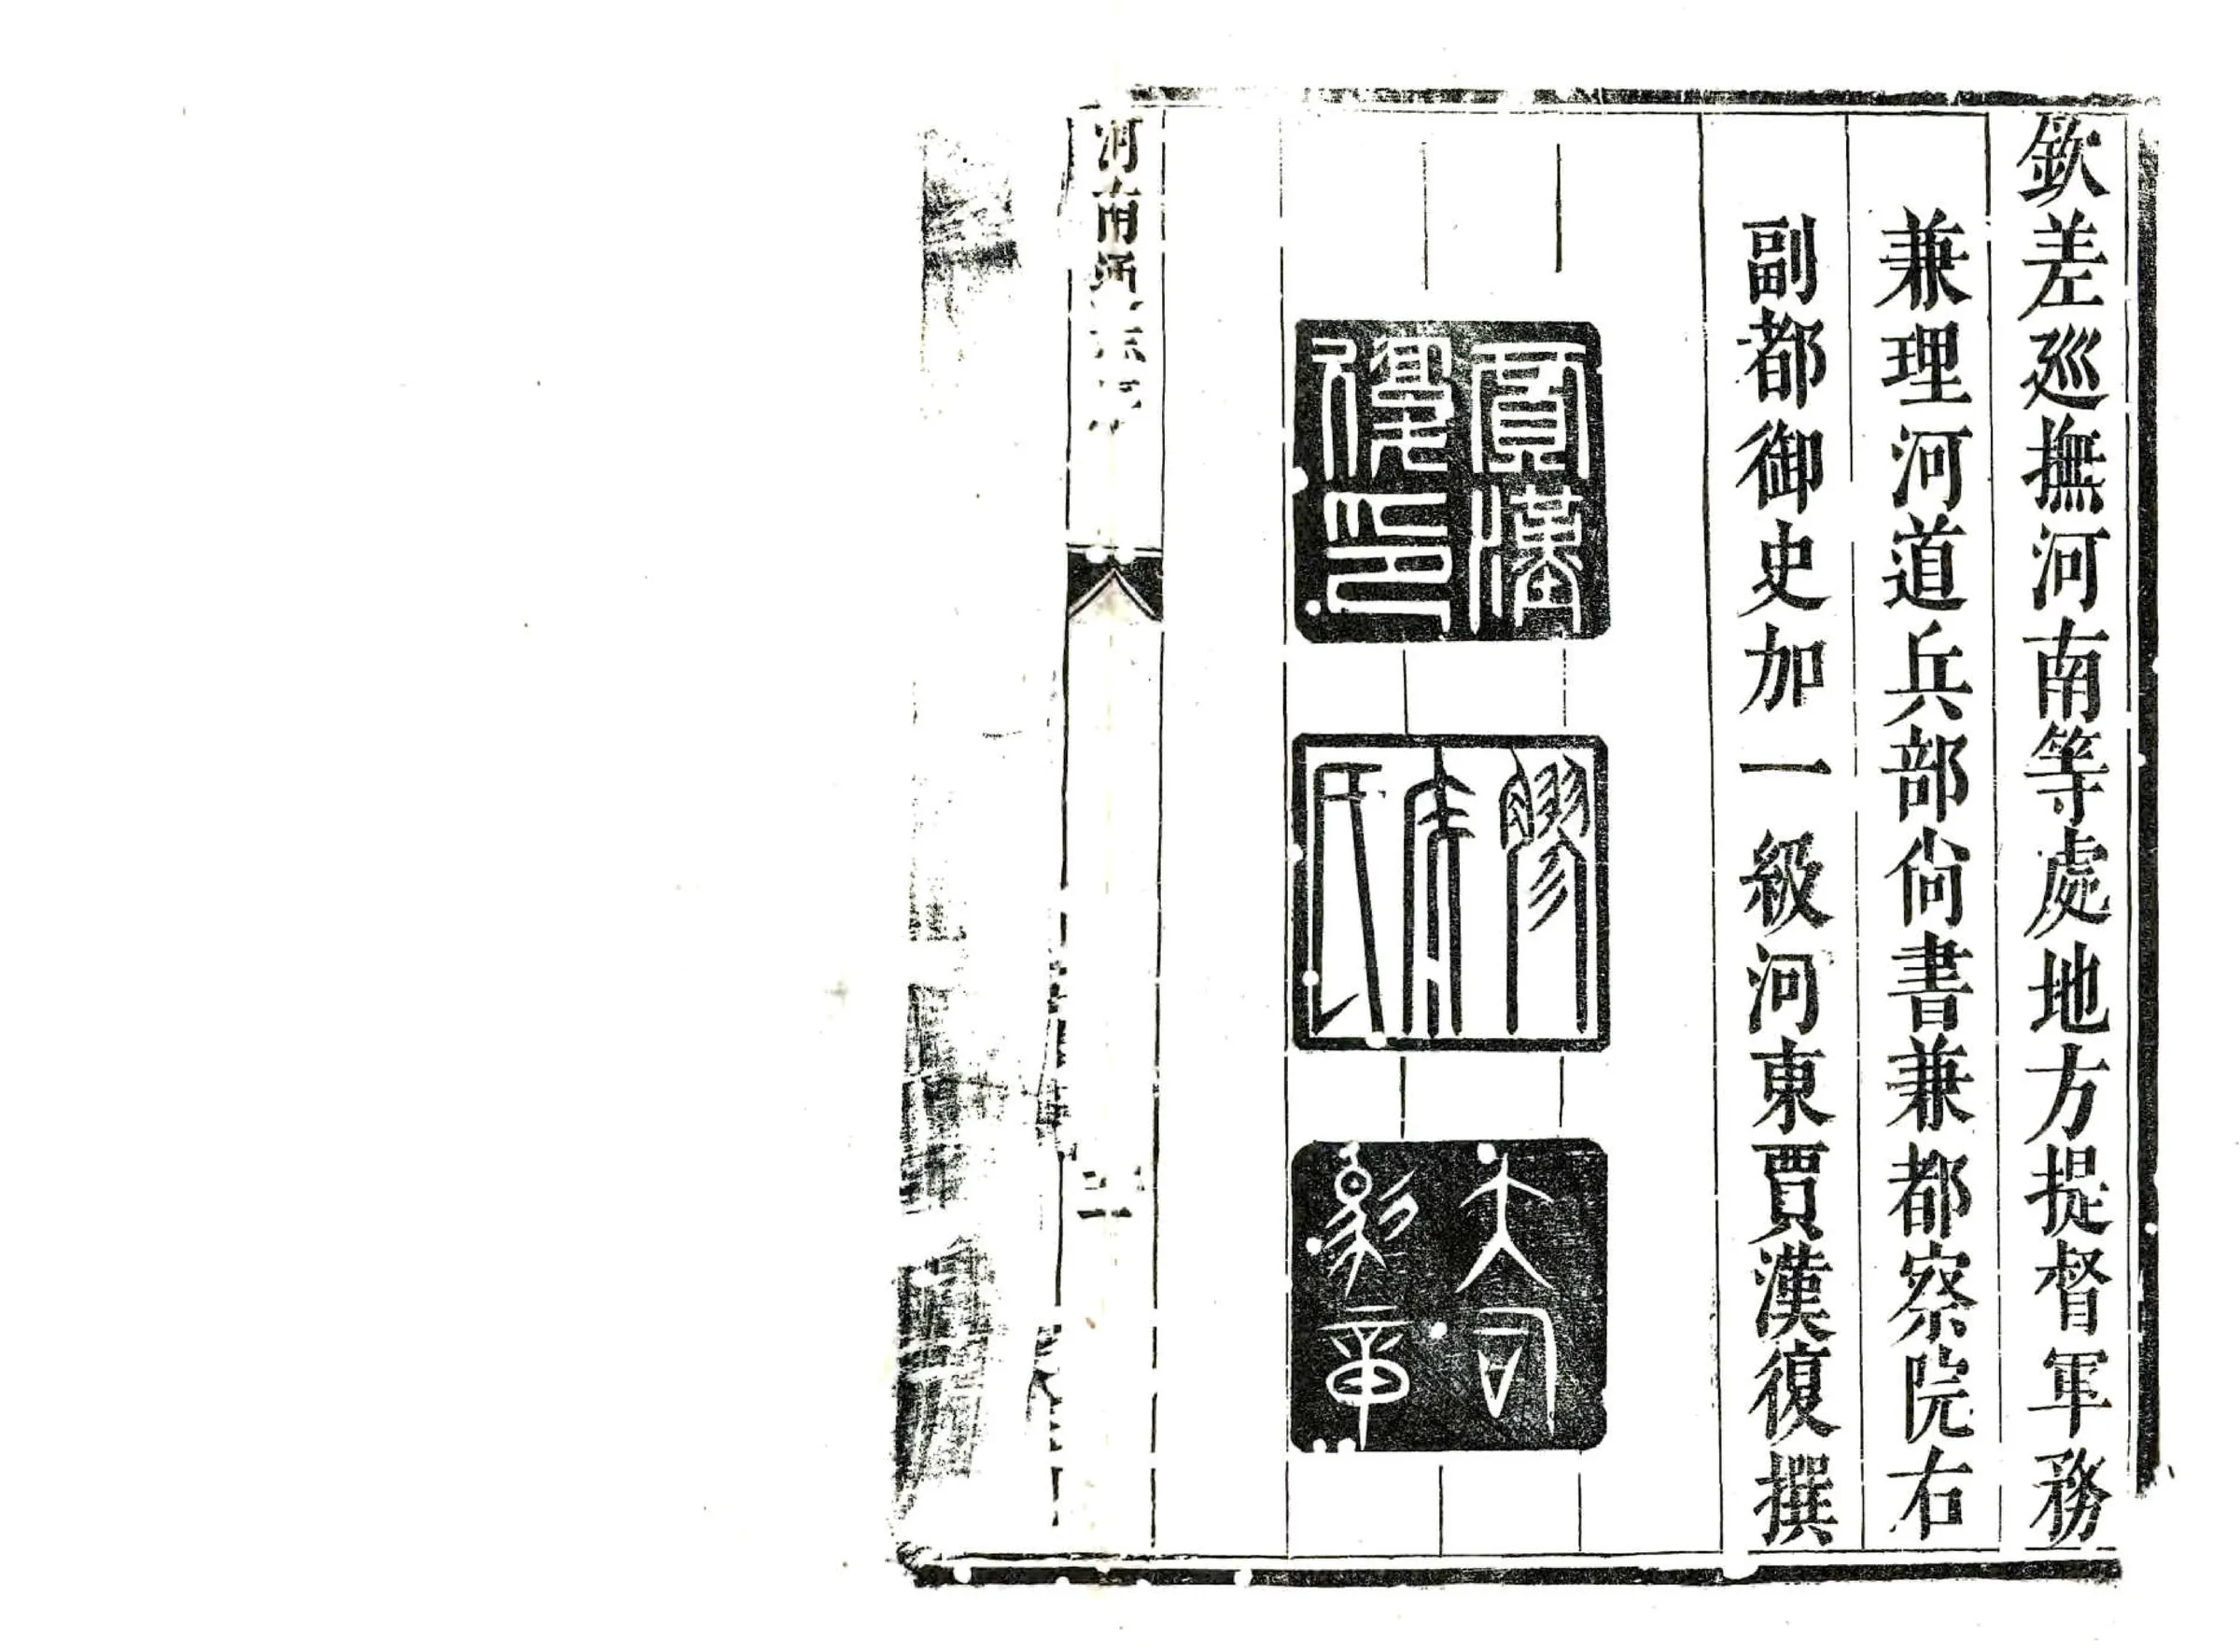 欽差巡撫河南等處地方提督軍務
兼理河道兵部尙書兼都察院右
副都御史加一級河東賈漢復撰
賈漢
復印
膠矦
氏
大司
馬章
河南通志
二